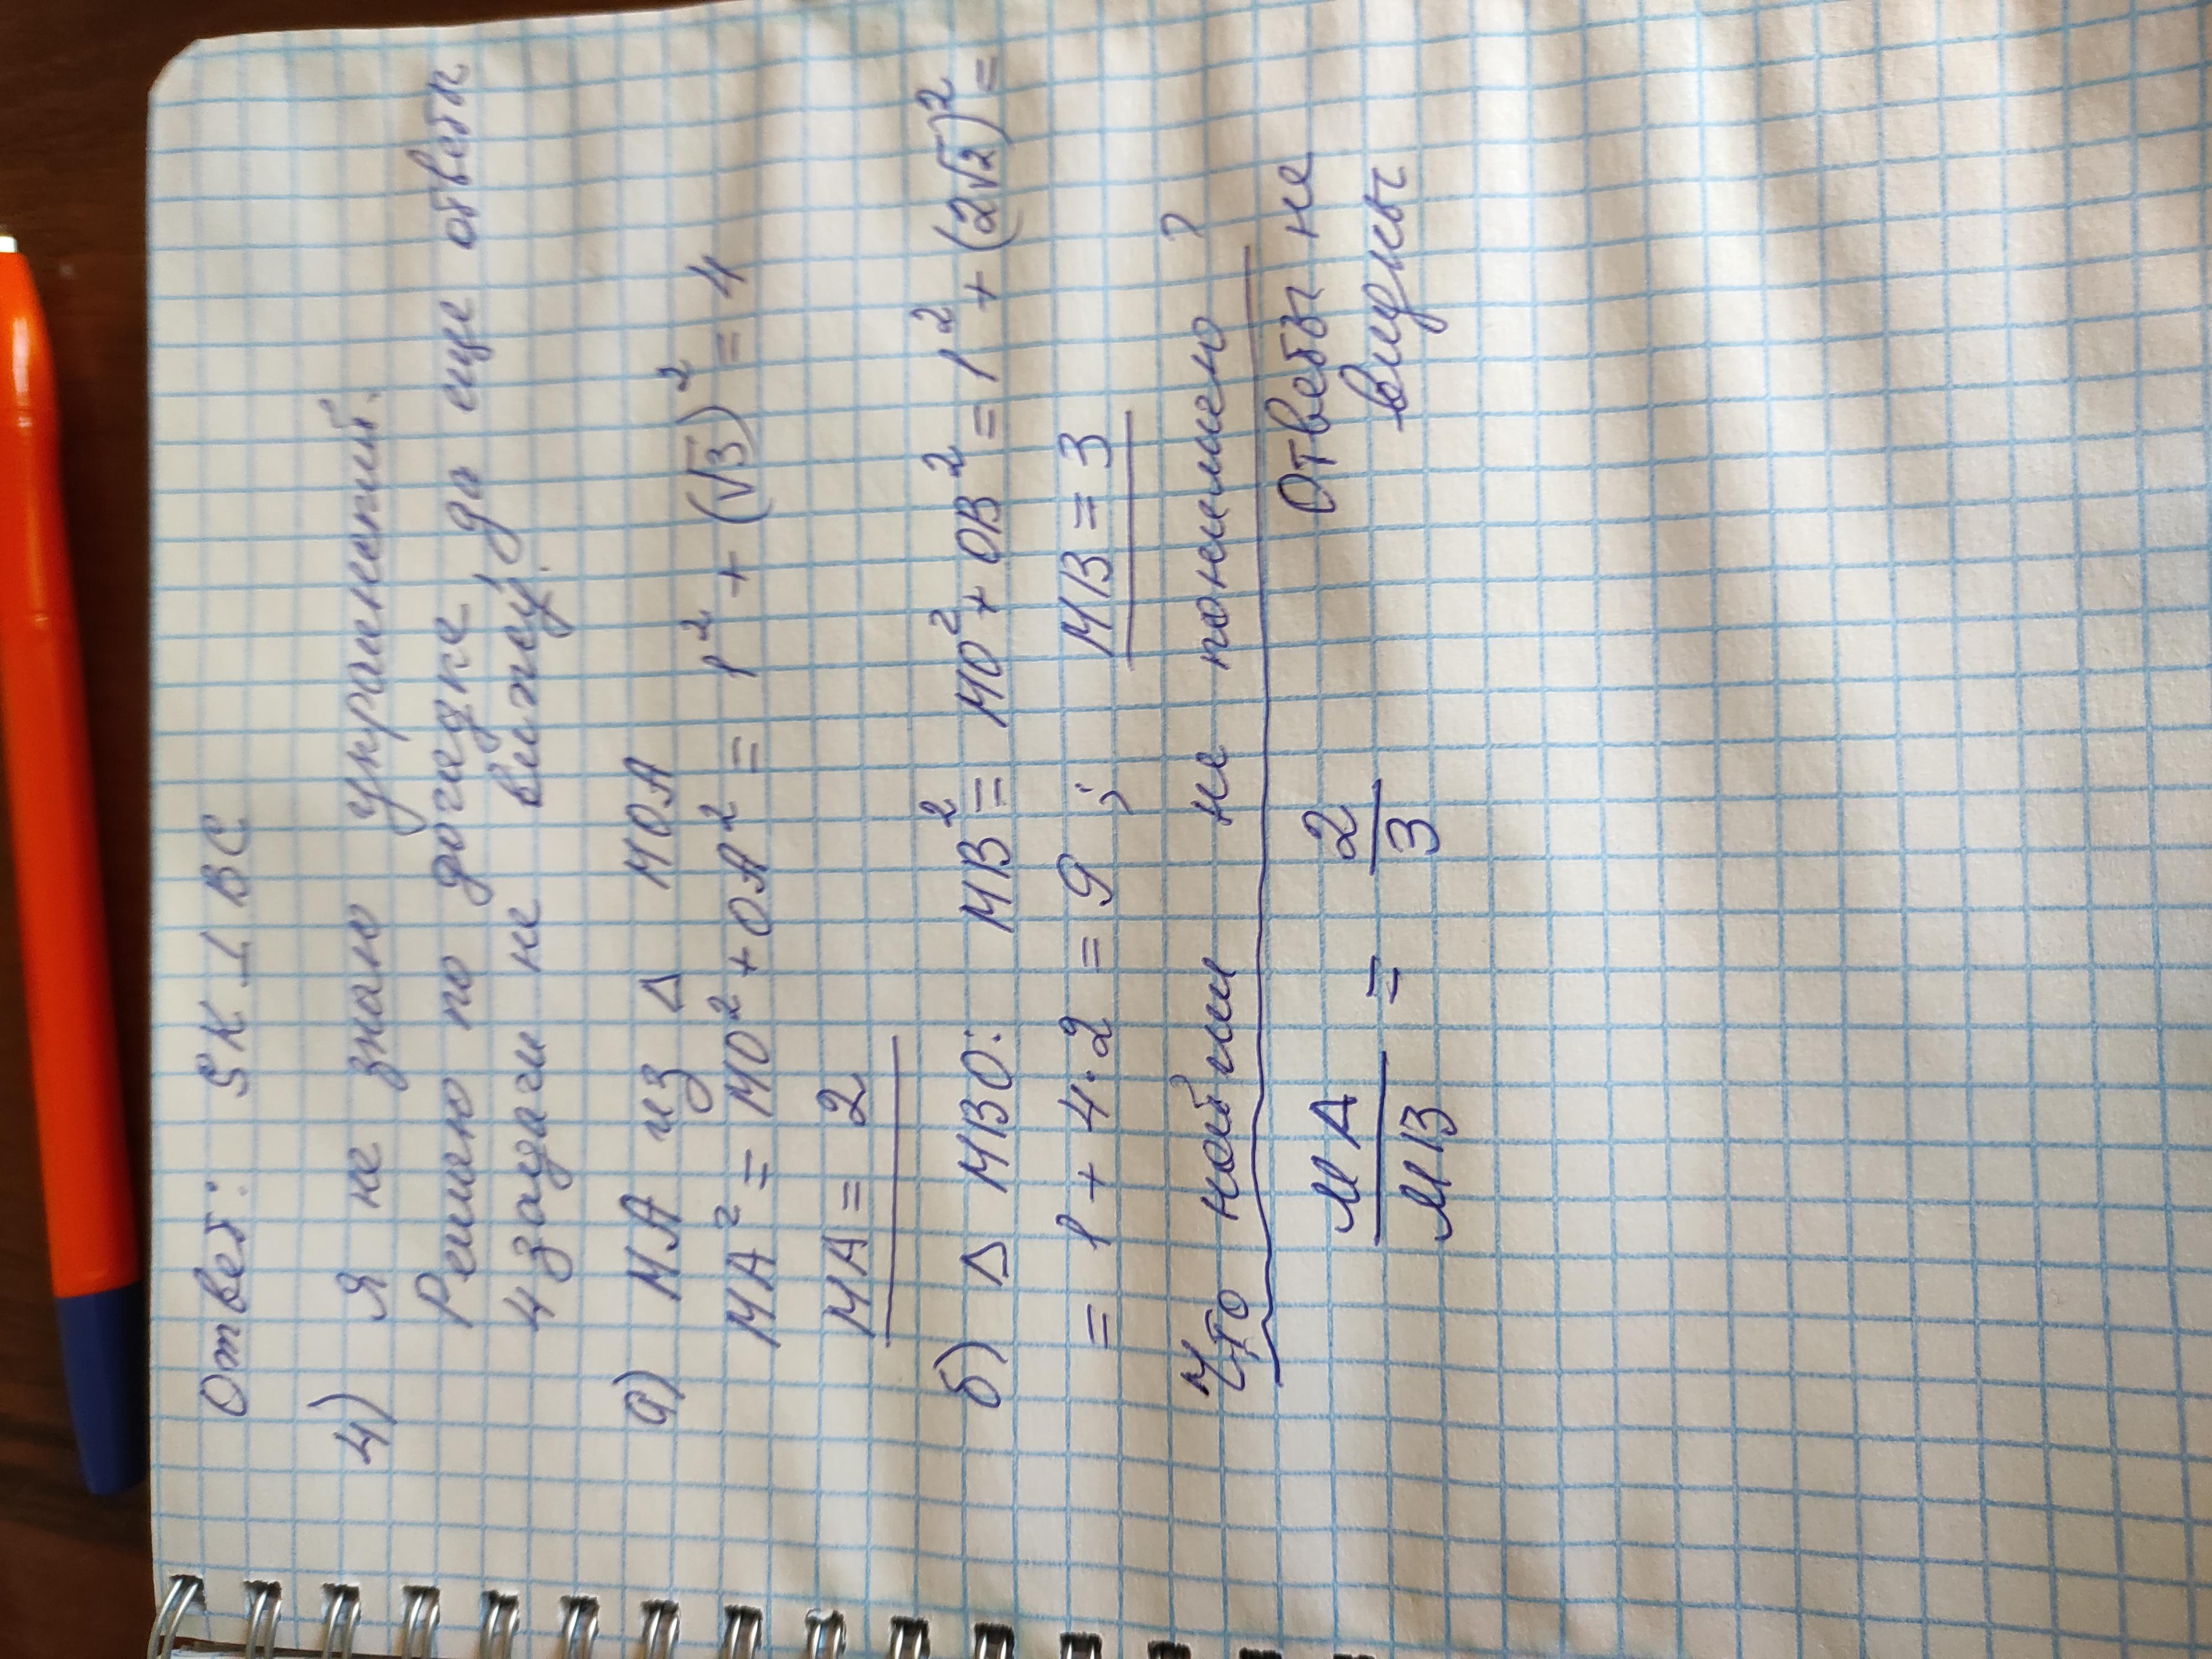 Ответ: SK ⊥ BC
4) Я не знаю упражнений.
Решаю по догадке да еще ответы
4 задачи не вижу.
а) MA из Δ MOA
MA² = MO² + OA² = 1² + (√3)² = 4
MA = 2
б) Δ MBO: MB² = MO² + OB² = 1² + (2√2)² =
= 1 + 4·2 = 9 ; MB = 3
Что найти не понимаю ?
MA/MB = 2/3 Ответы не
видны